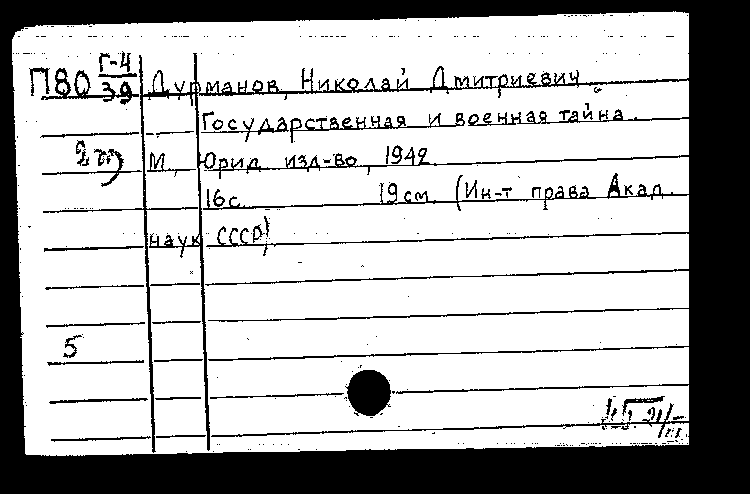 П80 Г-4/39 Дурманов, Николай Дмитриевич.
Государственная и военная тайна.
М., Юрид. изд-во, 1942.
16с. 19см. (Ин-т права Акад.
наук СССР)
5